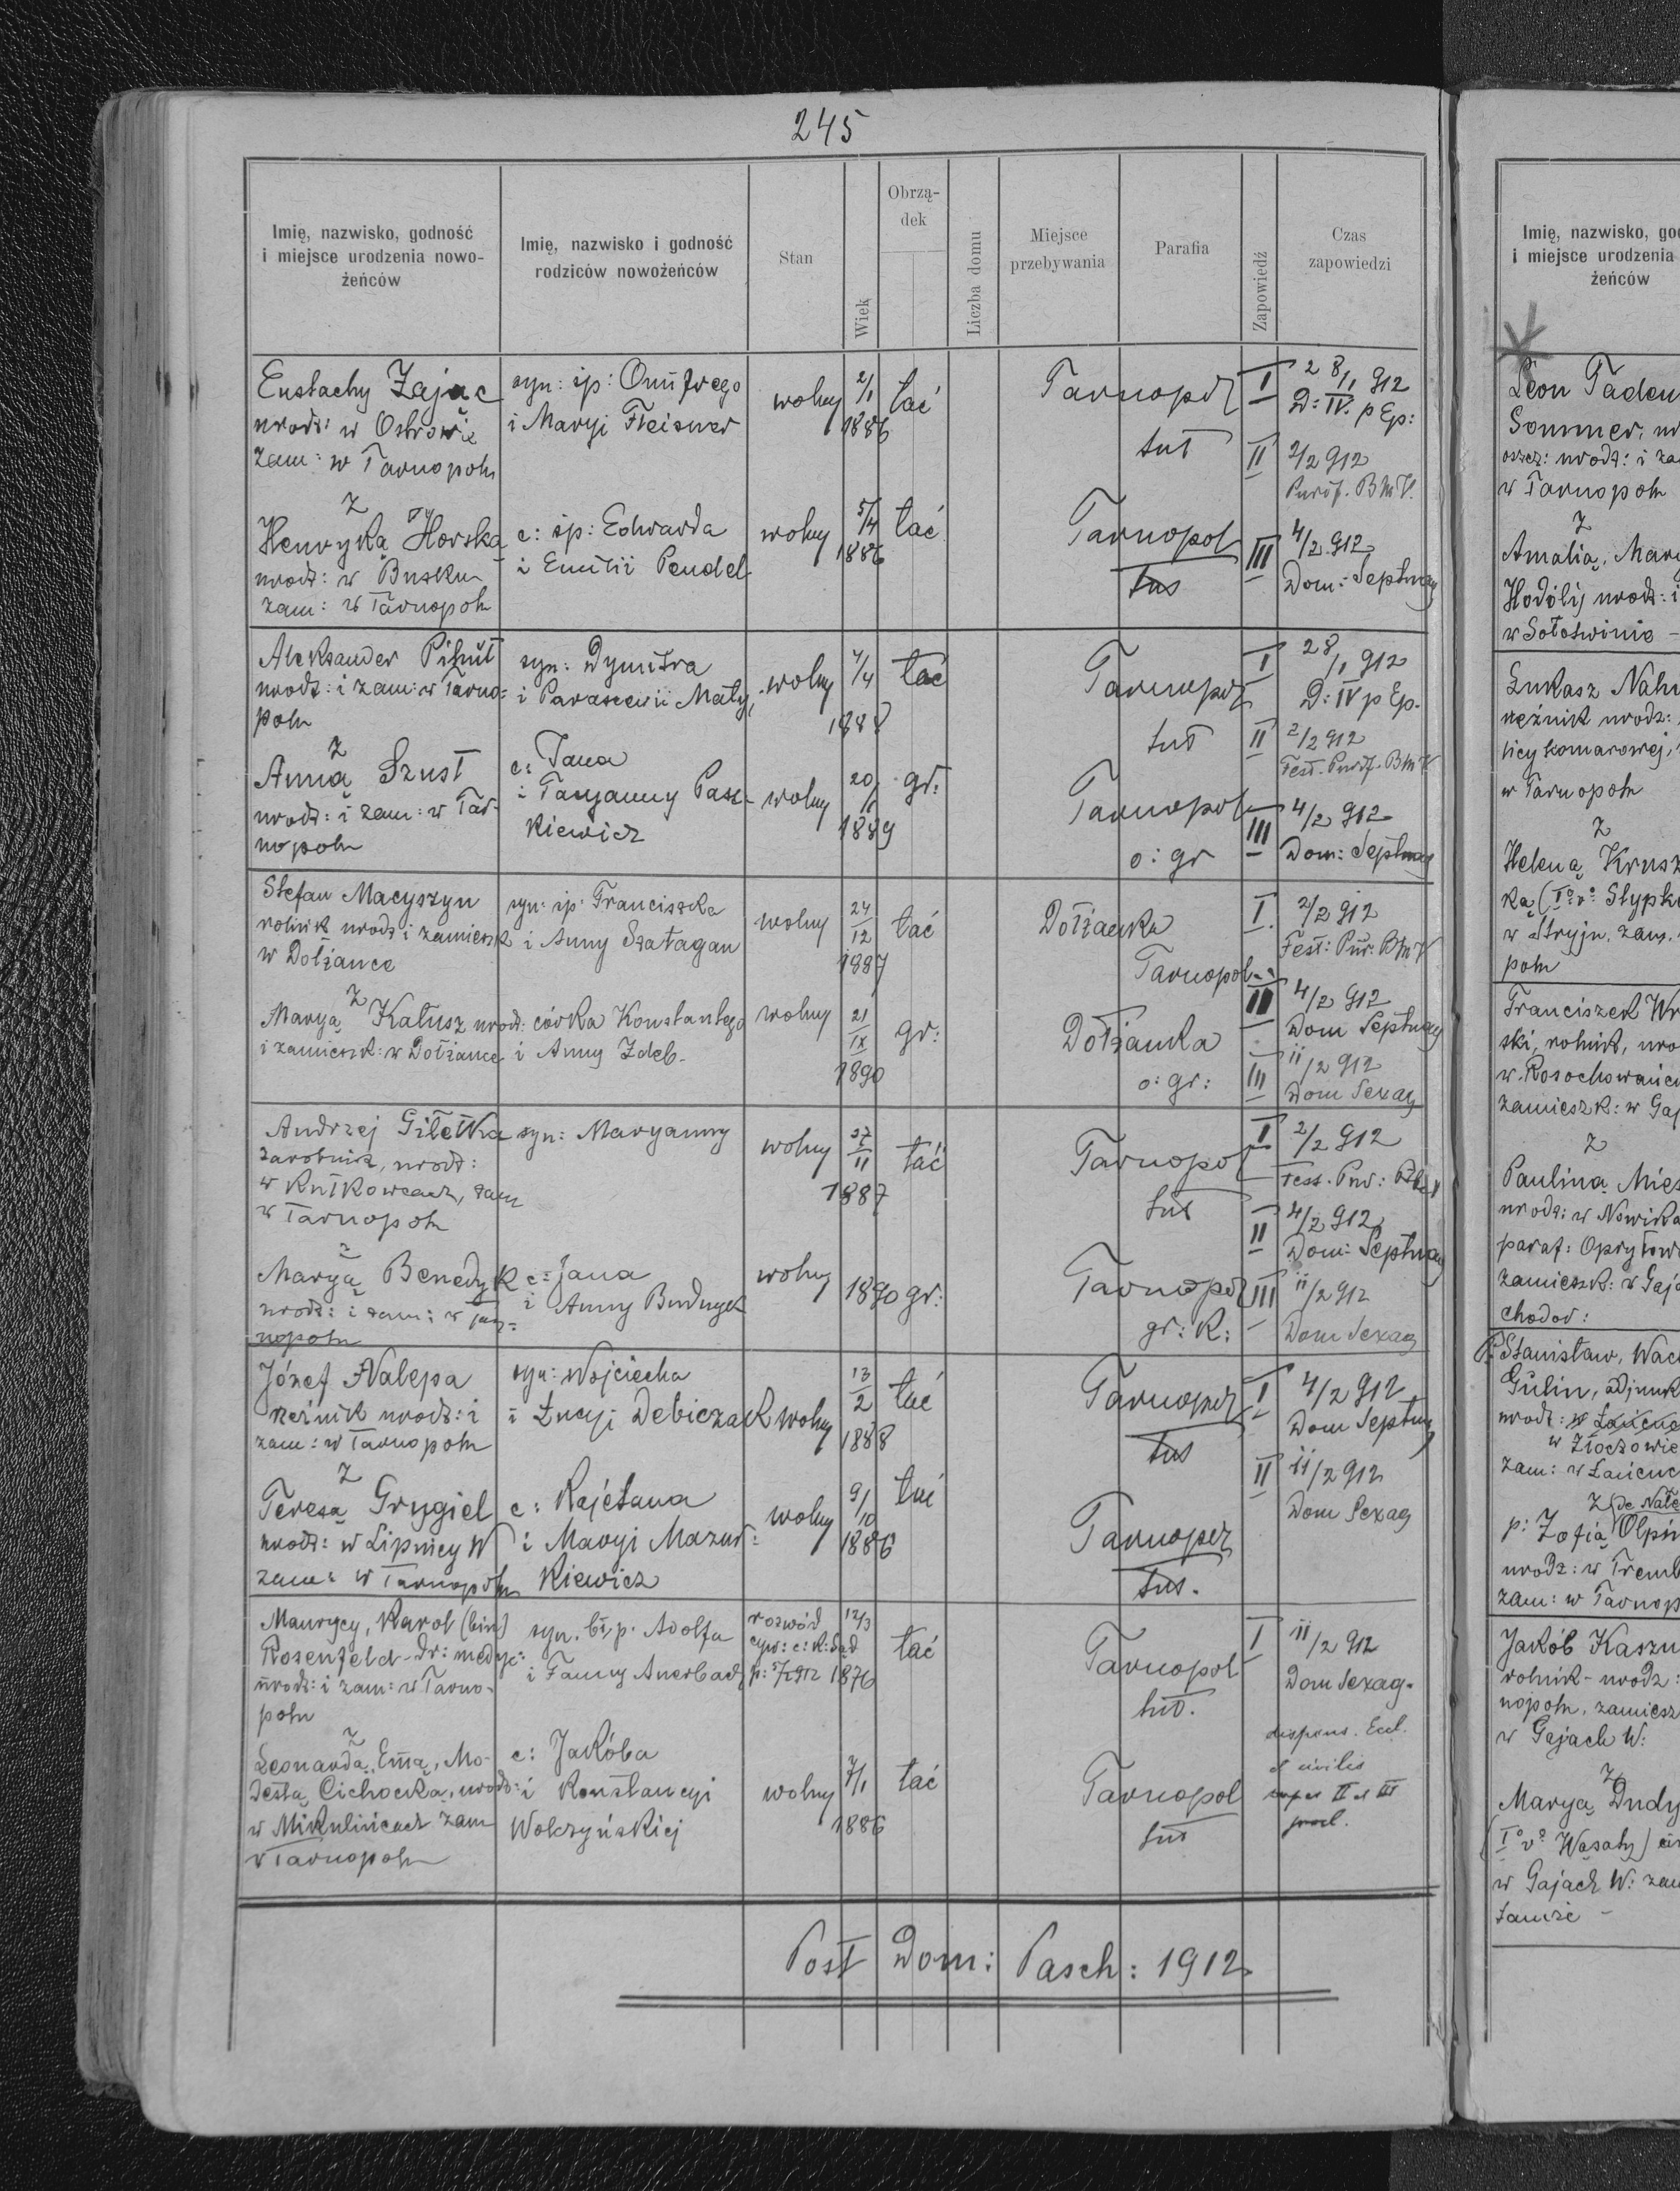 245
Imię, nazwisko, godność
i miejsce urodzenia nowo-
żeńców
Imię, nazwisko i godność
rodziców nowożeńców
Stan
Wiek
Obrzą-
dek
Liczba domu
Miejsce
przebywania
Parafia
Zapowiedź
Czas
zapowiedzi
Eustachy Zając
urodz: w Ostrowie
zam: w Tarnopolu
syn: śp: Onufrego
i Maryi Fleisner
wolny
2/1
1886
łać
Tarnopol
tut
I
28/1 912
D: IV. p Ep:
II
2/2 912
Purif. BMV.
z
Henryką Horską
urodz: w Busku
zam: w Tarnopolu
c: śp: Edwarda
i Emilii Pendel
wolny
5/4
1886
łać
Tarnopol
tus
III
4/2 912
Dom: Septuag
Aleksander Pikut
urodz: i zam: w Tarno-
polu
syn: Dymitra
i Parascewii Mały
wolny
4/4
1888
łać
Tarnopol
tut
I
28/1 912
D: IV p Ep.
II
2/2 912
Fest. Purif. BMV
z
Anną Szust
urodz: i zam: w Tar-
nopolu
c: Jana
i Tacyanny Pasz-
kiewicz
wolny
20/1
1889
gr:
Tarnopol
o: gr
III
4/2 912
Dom: Septuag
Stefan Macyszyn
rolnik urodz i zamieszk
w Dołżance
syn: śp: Franciszka
i Anny Szatagan
wolny
24/12
1887
łać
Dołżanka
Tarnopol
I.
2/2 912
Fest: Pur. BMV
II
4/2 912
Dom Septuag
z
Maryą Kałusz urodz:
i zamieszk: w Dołżance
córka Konstantego
i Anny Zdeb.
wolny
21/IX
1890
gr:
Dołżanka
o: gr:
III
11/2 912
Dom Sexag
Andrzej Giletka
zarobnik, urodz:
w Kutkowcach, zam
w Tarnopolu
syn: Maryanny
wolny
27/11
1887
łać
Tarnopol
tut
I
2/2 912
Fest. Pur:
II
4/2 912
Dom: Septuag
z
Maryą Benedyk
urodz: i zam: w Tar-
nopolu
c: Jana
i Anny Budnyk
wolny
1890
gr:
Tarnopol
gr: K:
III
11/2 912
Dom Sexag
Józef Nalepa
rzeźnik urodz: i
zam: w Tarnopolu
syn: Wojciecha
i Łucyi Debiczak
wolny
13/2
1888
łać
Tarnopol
tus
I
4/2 912
Dom Septuag
II
11/2 912
Dom Sexag
z
Teresą Grygiel
urodz: w Lipnicy W
zam: w Tarnopolu
c: Kajetana
i Maryi Mazur-
kiewicz
wolny
9/10
1886
łać
Tarnopol
tus.
Maurycy, Karol (bin)
Rosenfeld Dr: medyc:
urodz: i zam: w Tarno-
polu
syn. bł. p. Adolfa
i Fanny Auerbach
rozwód
cyw: c: k: Sąd
12/3
1876
łać
Tarnopol
tut.
I
11/2 912
Dom Sexag.
z
Leonardą, Emą, Mo-
destą Cichocką, urodz:
w Mikulińcach zam
w Tarnopolu
c: Jakóba
i Konstancyi
Wolczyńskiej
wolny
7/1
1886
łać
Tarnopol
tut
dispens. Eccl.
et civilis
super II et III
procl.
Post Dom: Pasch: 1912
Imię, nazwisko, god
i miejsce urodzenia
żeńców
Leon Tadeu
Sommer, ur
urodz: i za
w Tarnopolu
z
Amalią, Mary
Hodólij urodz: i
w Sołotwinie -
Łukasz Nahu
rzeźnik urodz:
licy komarowej,
w Tarnopolu
z
Heleną Krusz
ką (I° v° Słypk
w Stryju. zam.
polu
Franciszek Wr
ski, rolnik, uro
w Rosochowańcu
zamieszk: w Gaj
z
Pauliną Mies
urodz: w Nowik
paraf: Opryłow
zamieszk: w Gaja
chodor:
P. Stanisław, Wac
Gulin, adjunk
urodz: w Łańcuc
w Złoczowie
zam: w Łańcuc
z (de Nałę
p: Zofią Olpiń
urodz: w Tremb
zam: w Tarnop
Jakób Kaszu
rolnik - urodz:
nopolu, zamiesz
w Gajach W:
z
Maryą Dudy
(I° v° Wąsaty)
w Gajach W: zam
tamże -